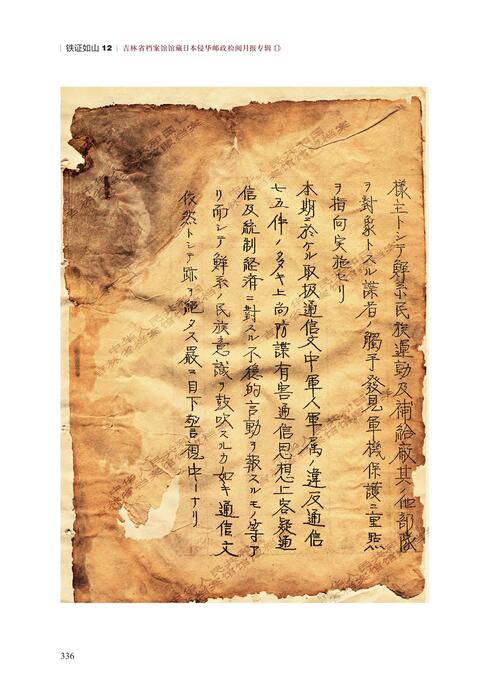 铁证如山 12 吉林省档案馆馆藏日本侵华邮政检阅月报专辑 ①
様主トシテ鮮系民族運動及補給廠其ノ他部隊
ヲ対象トスル諜者ノ觸手發見軍機保護ニ重点
ヲ指向実施セリ
本期ニ於ケル取扱通信文中軍人軍属ノ違反通信
七五件ノ多キ上尚防諜有害通信思想上容疑通
信及統制経済ニ対スル不穏的言動ヲ報スルモノ等ア
リ而シテ鮮系ノ民族意識ヲ鼓吹スルカ如キ通信文
依然トシテ跡ヲ絶タス嚴ニ目下警視中ナリ
336